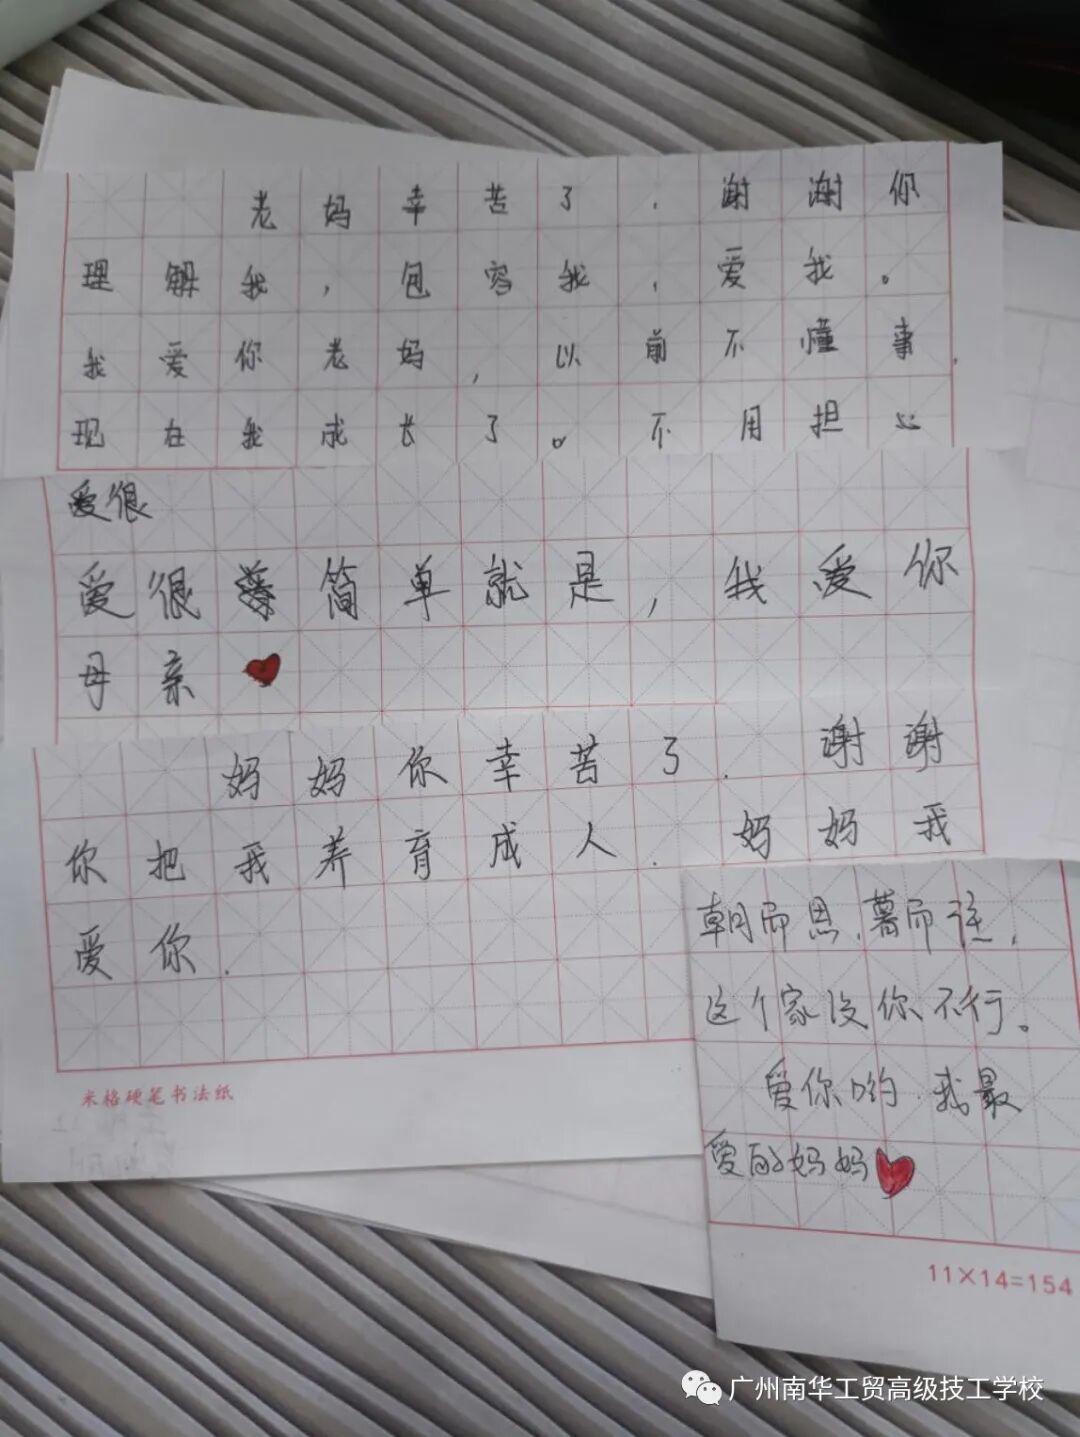 老妈幸苦了，谢谢你
理解我，包容我，爱我。
我爱你老妈，以前不懂事，
现在我成长了。不用担心
爱很
爱很简单就是，我爱你
母亲
妈妈你幸苦了．谢谢
你把我养育成人．妈妈我
爱你．
米格硬笔书法纸
朝而思，暮而念，
这个家没你不行。
爱你哟．我最
爱的妈妈
11×14=154
广州南华工贸高级技工学校